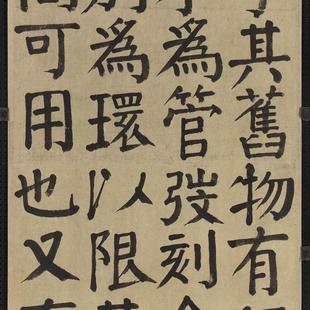 其舊物有
為管弢刻
別為環以限
可用也又